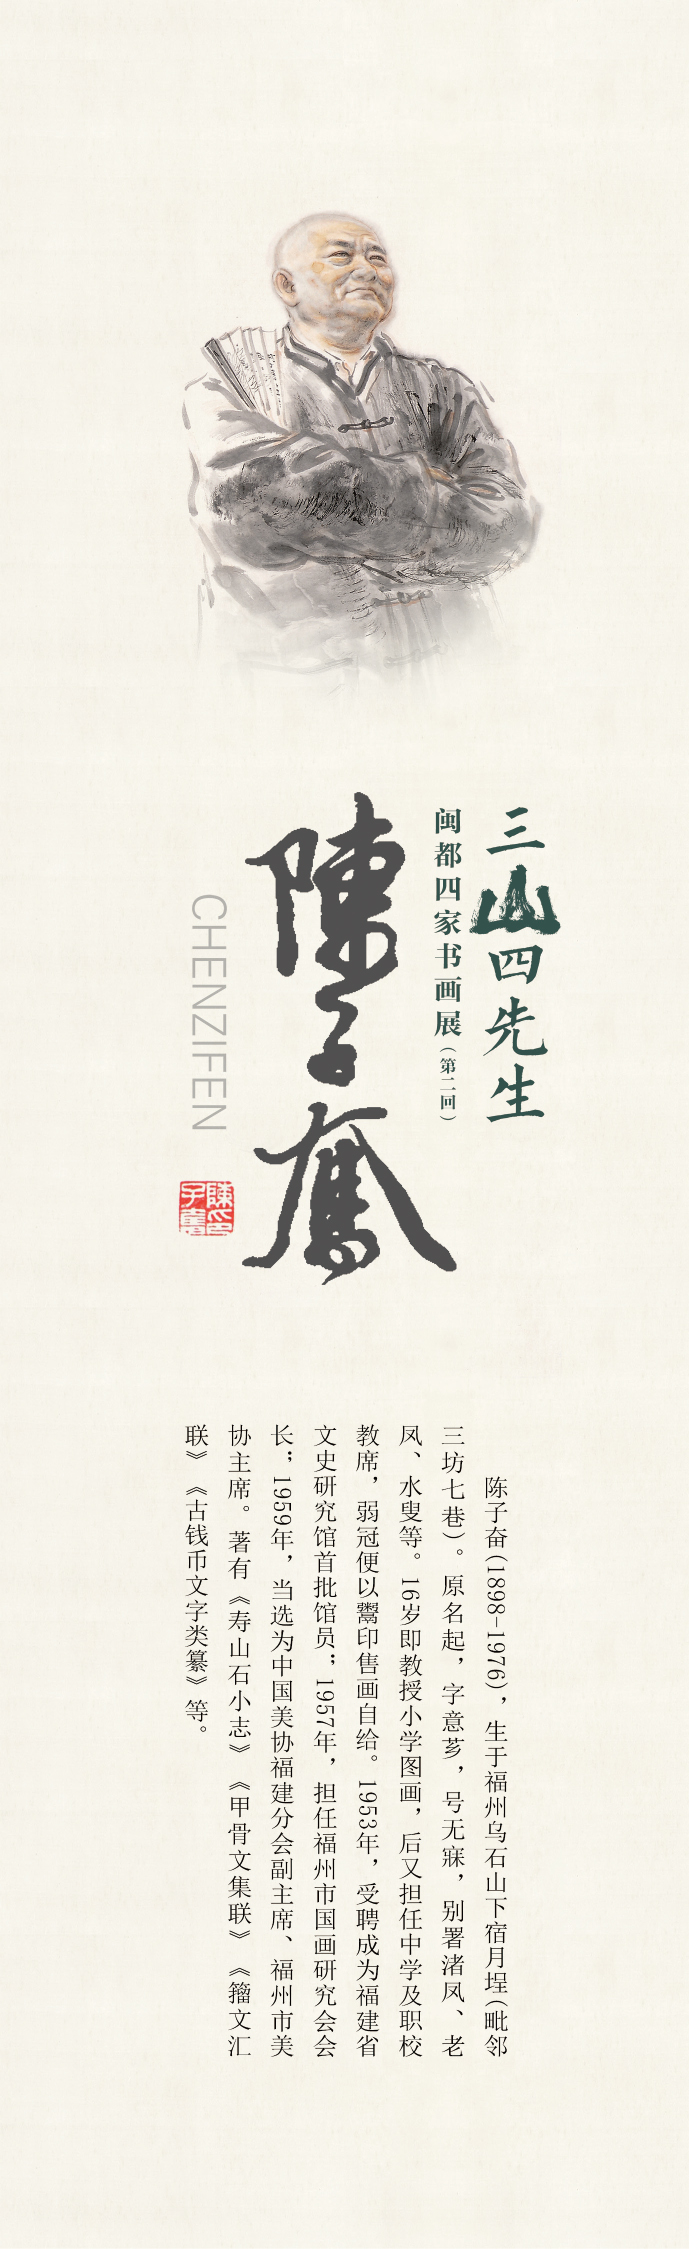 三山四先生
闽都四家书画展(第二回)
陳子奮
CHENZIFEN
陳子奮印
陈子奋(1898-1976)，生于福州乌石山下宿月埕(毗邻
三坊七巷)。原名起，字意芗，号无寐，别署渚凤、老
凤、水叟等。16岁即教授小学图画，后又担任中学及职校
教席，弱冠便以鬻印售画自给。1953年，受聘成为福建省
文史研究馆首批馆员；1957年，担任福州市国画研究会会
长；1959年，当选为中国美协福建分会副主席、福州市美
协主席。著有《寿山石小志》《甲骨文集联》《籀文汇
联》《古钱币文字类纂》等。